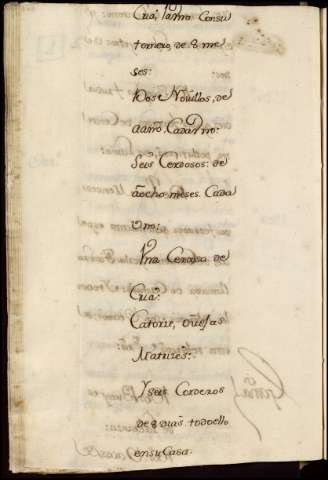 Cria, Vna mo Consu
ternero, de 8 me
ses:
Dos Novillos, de
a año. Cada Vno:
Seis Cerdosos: de
a ocho meses. Cada
Uno:
Vna Cerdosa de
Cria:
Catorce, ovejas
Matrizes:
Y seis, Corderos
de 8 dias. todo ello
en su Casa.